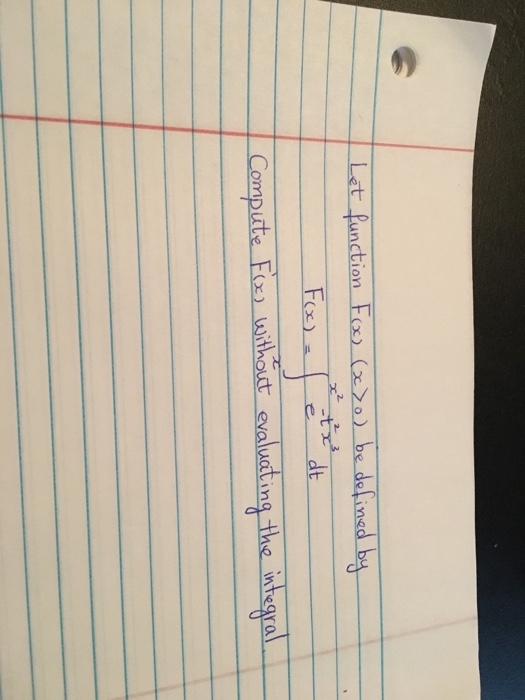 Let function F(x) (x>0) be defined by
F(x) = ∫_x^{x²} e^{-t²x³} dt
Compute F'(x) without evaluating the integral.